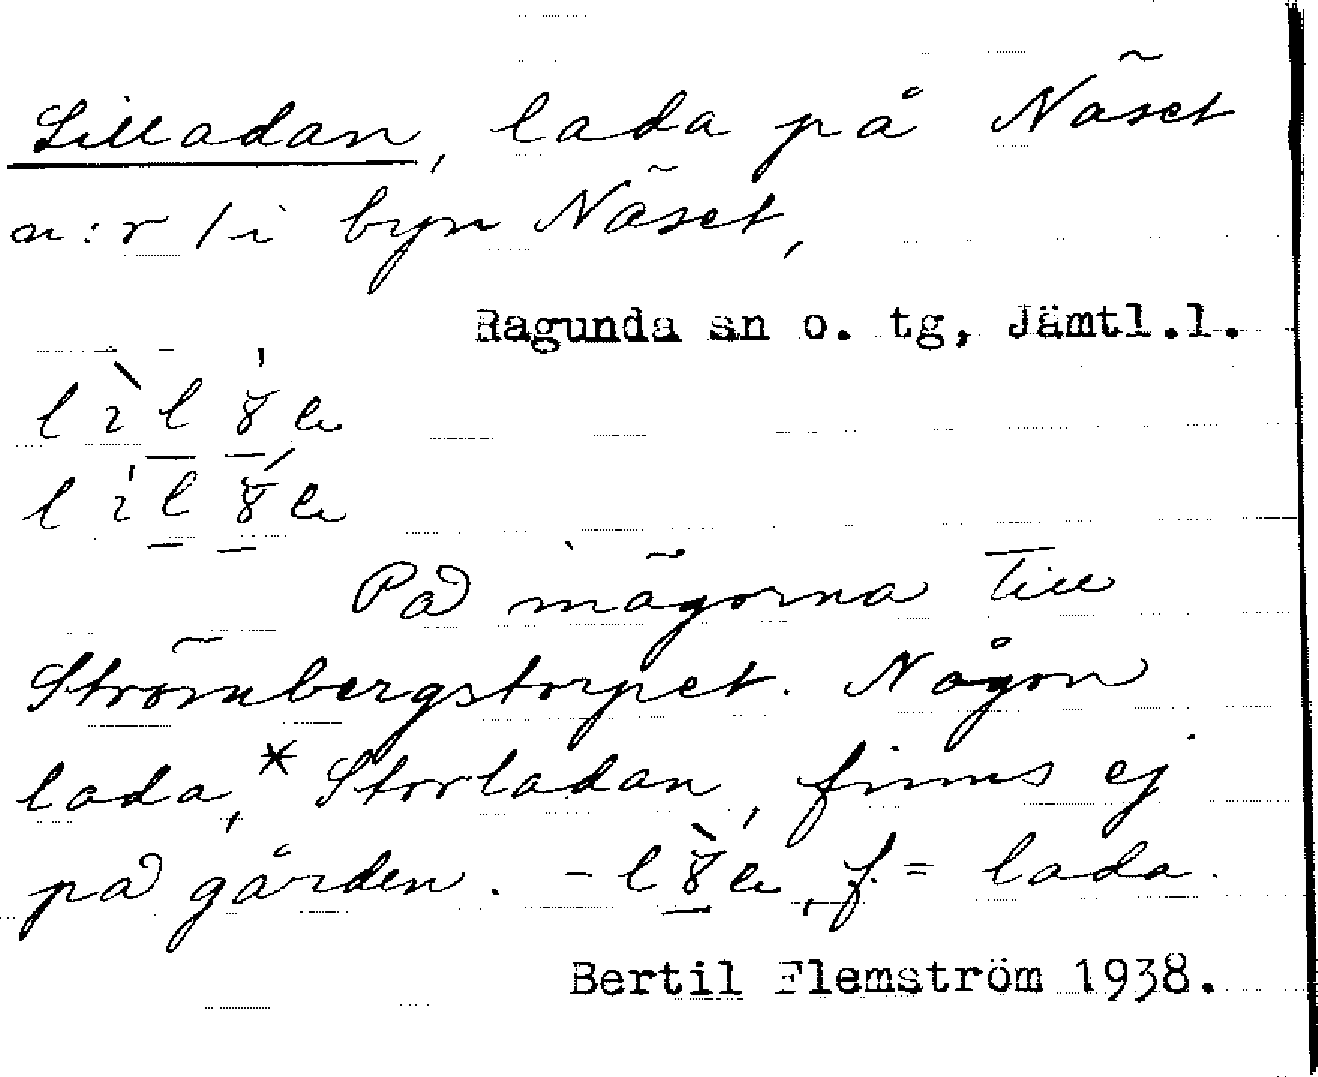 Lilladan, lada på Näset
n:r 1 i byn Näset,
Ragunda sn o. tg, Jämtl.l.
På mägorna till
Strömbergstorpet. Någon
lada, *Storladan, finns ej
på gården. - f. = lada.
Bertil Flemström 1938.